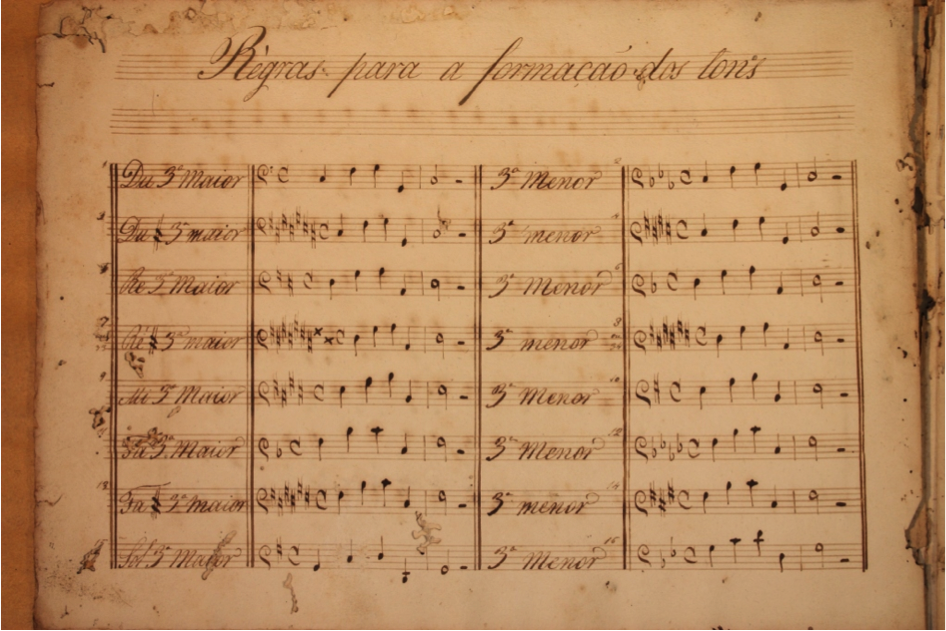 Régras para a formação dos tons
Du 3ª Maior 3ª Menor
Du # 3ª maior 3ª menor
Re 3ª Maior 3ª Menor
Ré # 3ª maior 3ª menor
Mi 3ª Maior 3ª Menor
Fa 3ª Maior 3ª Menor
Fa # 3ª maior 3ª menor
Sol 3ª Maior 3ª Menor